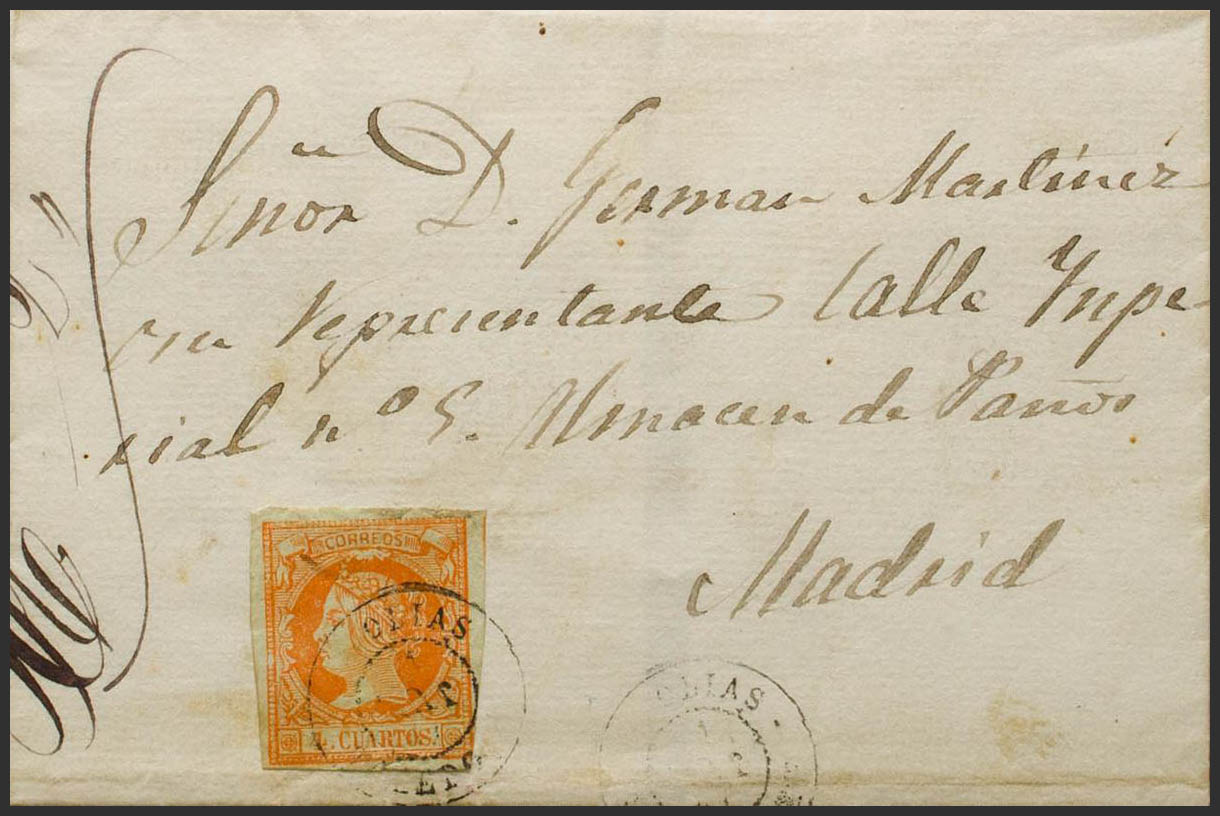 Señor D. German Martinez
representante Calle Ynpe
rial nº 5. Almacen de Paños
Madrid
CORREOS
OLIAS
4 CUARTOS.
OLIAS